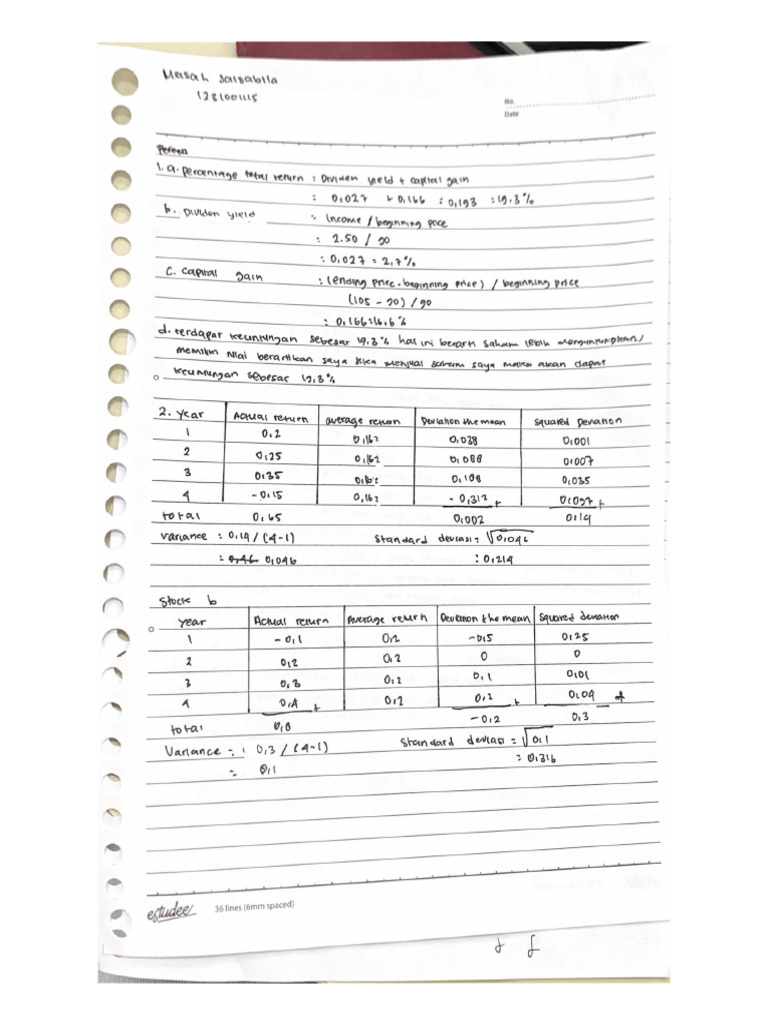 Salsabila
128100115
No.
Date
1. a. percentage total return : Dividen yield + capital gain
: 0,027 + 0,166 : 0,193 : 19.3%
b. Dividen yield : Income / beginning price
: 2.50 / 90
: 0,027 = 2,7%
c. capital gain : (ending price - beginning price) / beginning price
(105 - 90) / 90
: 0,166 : 16,6%
d. terdapat keuntungan sebesar 19,3% hal ini berarti saham lebih menguntungkan/
memiliki nilai berartikan saya jika menjual saham saya maka akan dapat
keuntungan sebesar 19,3%
2. Year Actual return average return Deviation the mean squared Deviation
1 0,2 0,162 0,038 0,001
2 0,25 0,162 0,088 0,007
3 0,35 0,162 0,188 0,035
4 -0,15 0,162 -0,312 + 0,097 +
total 0,65 0,002 0,14
variance : 0,14 / (4-1) Standard deviasi = √0,046
: 0,46 0,046 : 0,214
Stock b
year Actual return Average return Deviation the mean Squared deviation
1 -0,1 0,2 -0,5 0,25
2 0,2 0,2 0 0
3 0,3 0,2 0,1 0,01
4 0,4 + 0,2 0,2 + 0,04 +
total 0,8 -0,2 0,3
Variance = : 0,3 / (4-1) Standard deviasi = √0,1
= 0,1 : 0,316
estudee 36 lines (6mm spaced)